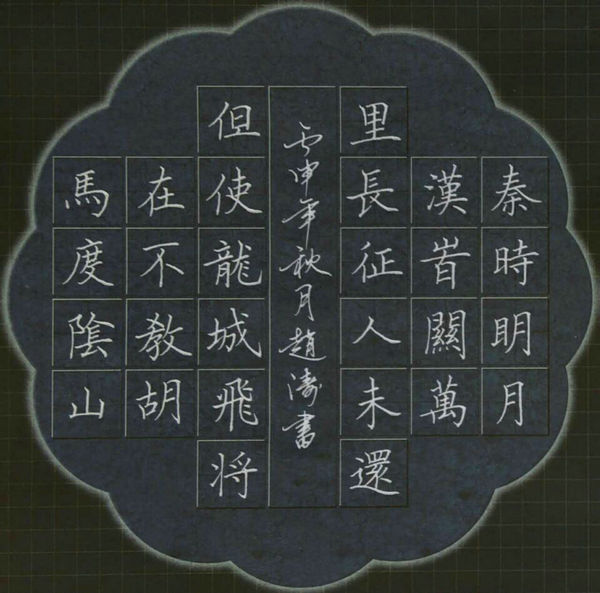 秦時明月
漢旹關萬
里長征人未還
但使龍城飛将
在不教胡
馬度陰山
丙申年秋月趙濤書